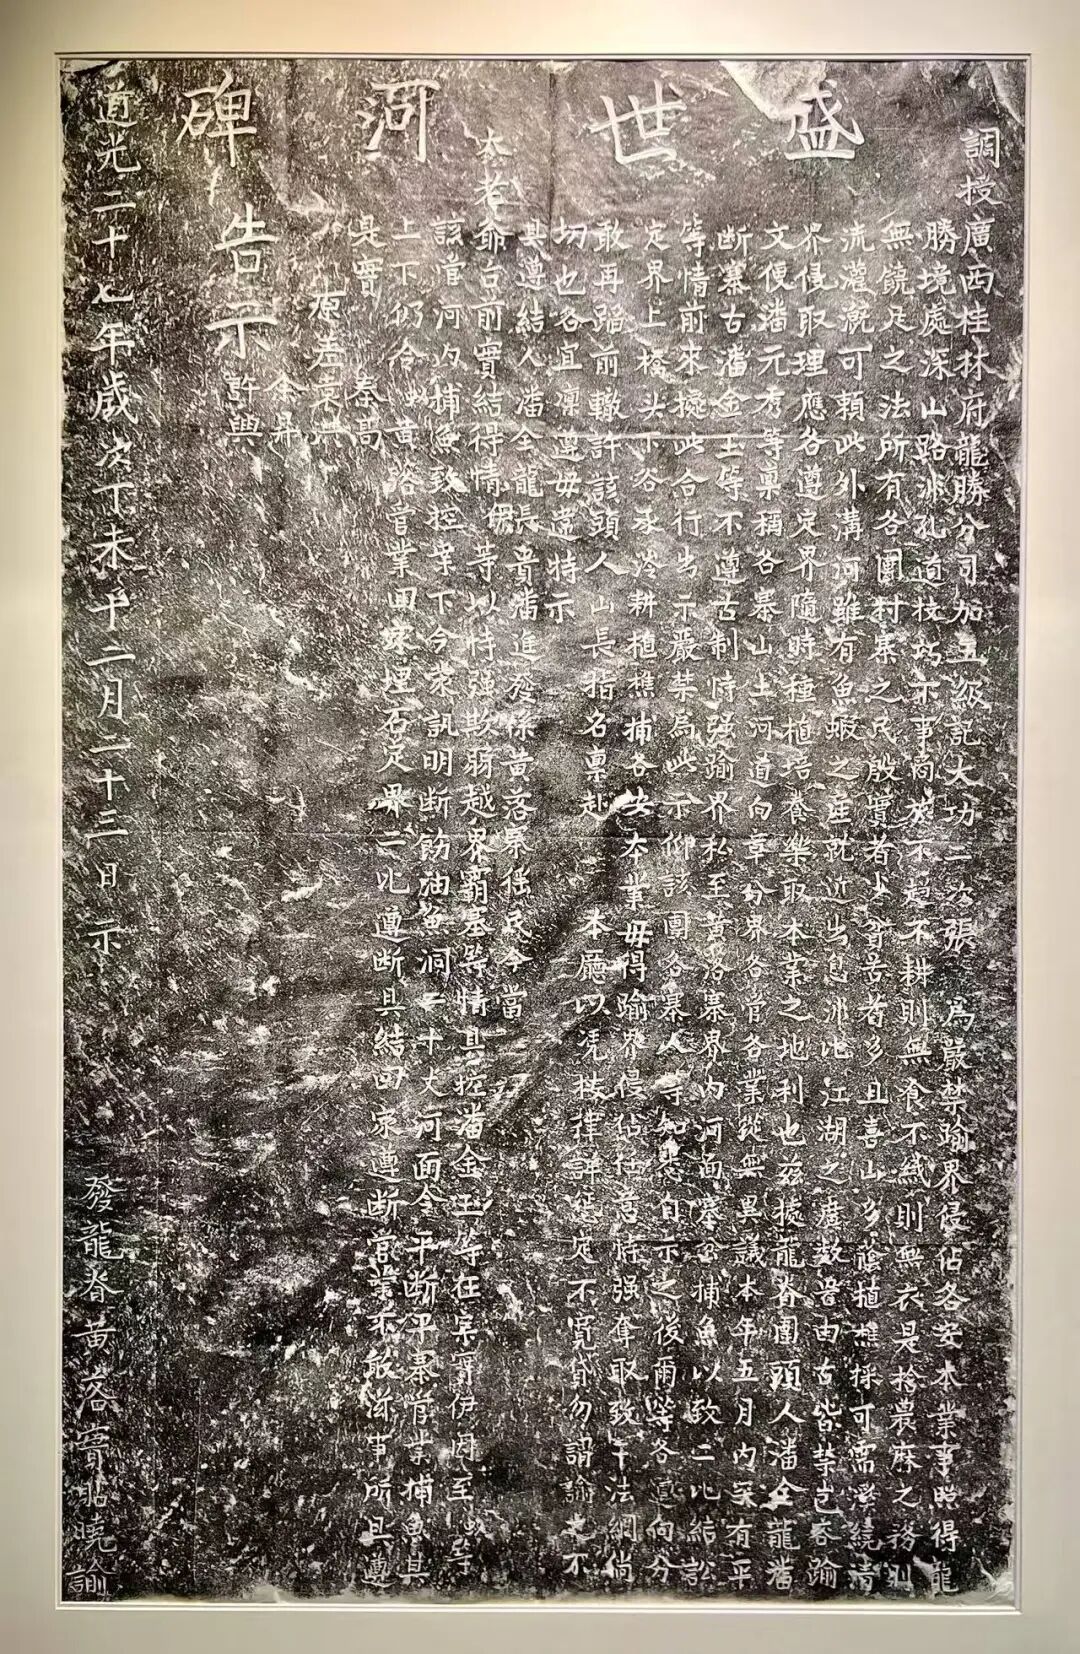 盛世河碑
調授廣西桂林府龍勝分司加五級記大功二次張 為嚴禁踰界侵佔各安本業事照得龍
勝境處深山路非孔道技巧不事商 不 不耕則無食不織則無衣是捨農麻之務別
無饒足之法所有各團村寨之民殷實者少貧苦者多且喜山多蔭植樵採可需瀠繞清
流灌溉可賴此外溝河雖有魚蝦之產就近出息非比江湖之產數 由古皆禁 容踰
界侵取理應各遵定界隨時種植培養樂取本業之地利也茲據龍脊團頭人潘金龍潘
文便潘元秀等稟稱各寨山土河道向章分界各管各業從無異議本年五月內突有平
斷寨古潘金玉等不遵古制恃强踰界私至黃洛寨界內河面塞 捕魚以致二比結訟
等情前來據此合行出示嚴禁為此示仰該團各寨人等知悉自示之後爾等各遵向分
定界上橋头下谷 耕植樵捕各安本業毋得踰界侵佔任意恃强奪取致干法網倘
敢再蹈前轍許該頭人山長指名稟赴 本廳以凭按律詳 處不寬貸勿謂諭之不
切也各宜凜遵毋違特示
具遵結人潘全龍 長貴潘進發係黃落寨徭民今當
太老爺台前實結得情 等以恃强欺弱越界霸塞等情具控潘金玉等在案 伊因至 等
該管河內捕魚致控案下今蒙訊明斷飭油魚洞二十丈河面令平斷平寨管業捕魚其
上下仍合 黃落管業回家埋石定界二比遵斷具結回家遵斷管業不敢滋事所具遵
是實
原差 秦高
告示
余昇
許興
道光二十七年歲次丁未十二月二十三日示 發龍脊黃落寨貼曉諭